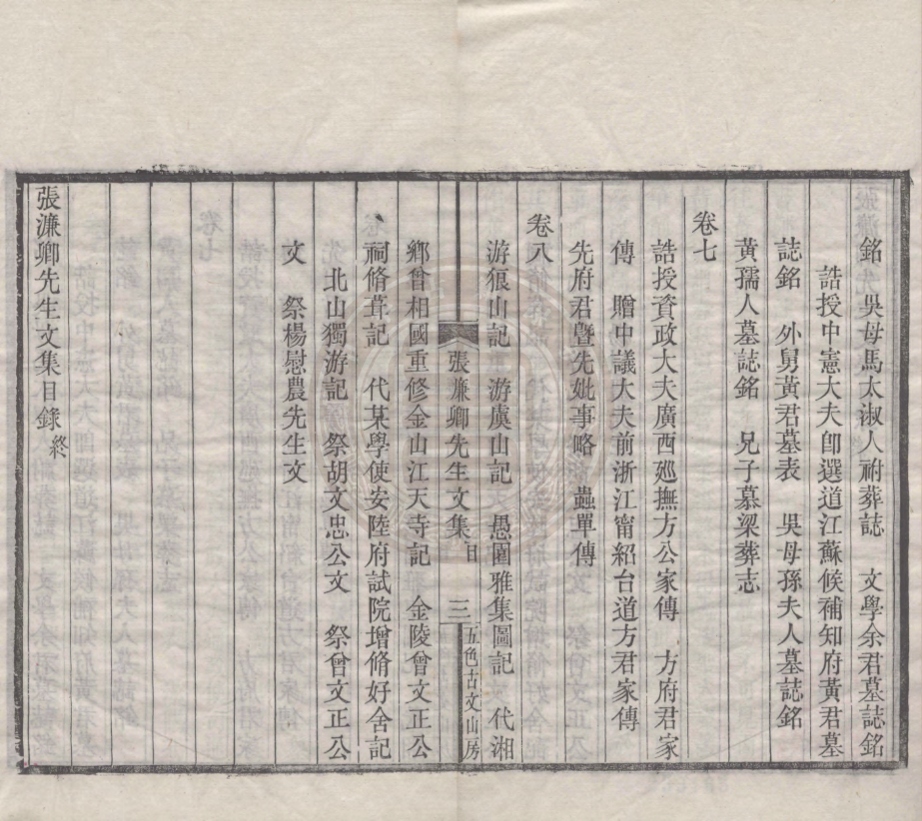 銘　吳母馬太淑人祔葬誌　文學余君墓誌銘
誥授中憲大夫卽選道江蘇候補知府黃君墓
誌銘　外舅黃君墓表　吳母孫夫人墓誌銘
黃孺人墓誌銘　兄子慕梁葬志
卷七
誥授資政大夫廣西廵撫方公家傳　方府君家
傳　贈中議大夫前浙江甯紹台道方君家傳
先府君暨先妣事略　蟲單傳
卷八
游狼山記　游虞山記　愚園雅集圖記　代湘
張廉卿先生文集 目　三　五色古文山房
鄉曾相國重修金山江天寺記　金陵曾文正公
祠脩葺記　代某學使安陸府試院增脩好舍記
北山獨游記　祭胡文忠公文　祭曾文正公
文　祭楊慰農先生文
張濂卿先生文集目錄終